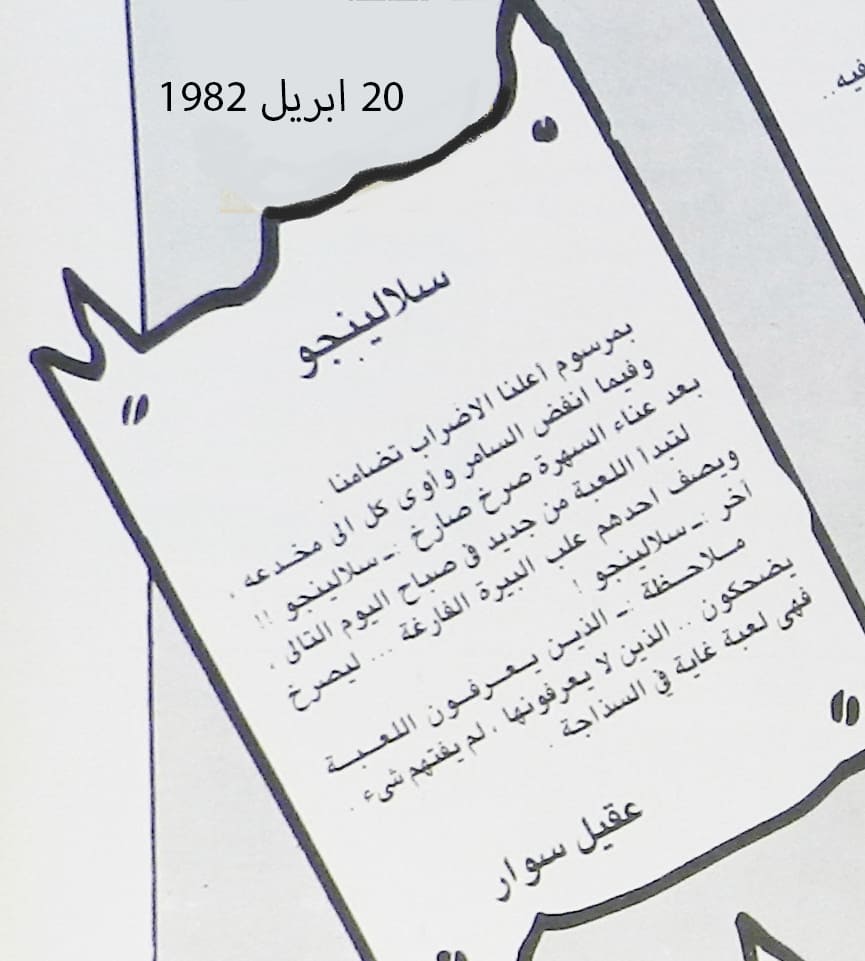 20 ابريل 1982
فيه..
سلالينجو
بمرسوم أعلنا الاضراب تضامنا .
وفيما انفض السامر وأوى كل الى مخدعه ،
بعد عناء السهرة صرخ صارخ :ـ سلالينجو !!
لتبدأ اللعبة من جديد فى صباح اليوم التالى ،
ويصف احدهم علب البيرة الفارغة ... ليصرخ
آخر :ـ سلالينجو !
ملاحظة :ـ الذين يعرفون اللعبة
يضحكون .. الذين لا يعرفونها ، لم يفتهم شىء .
فهى لعبة غاية في السذاجة .
عقيل سوار